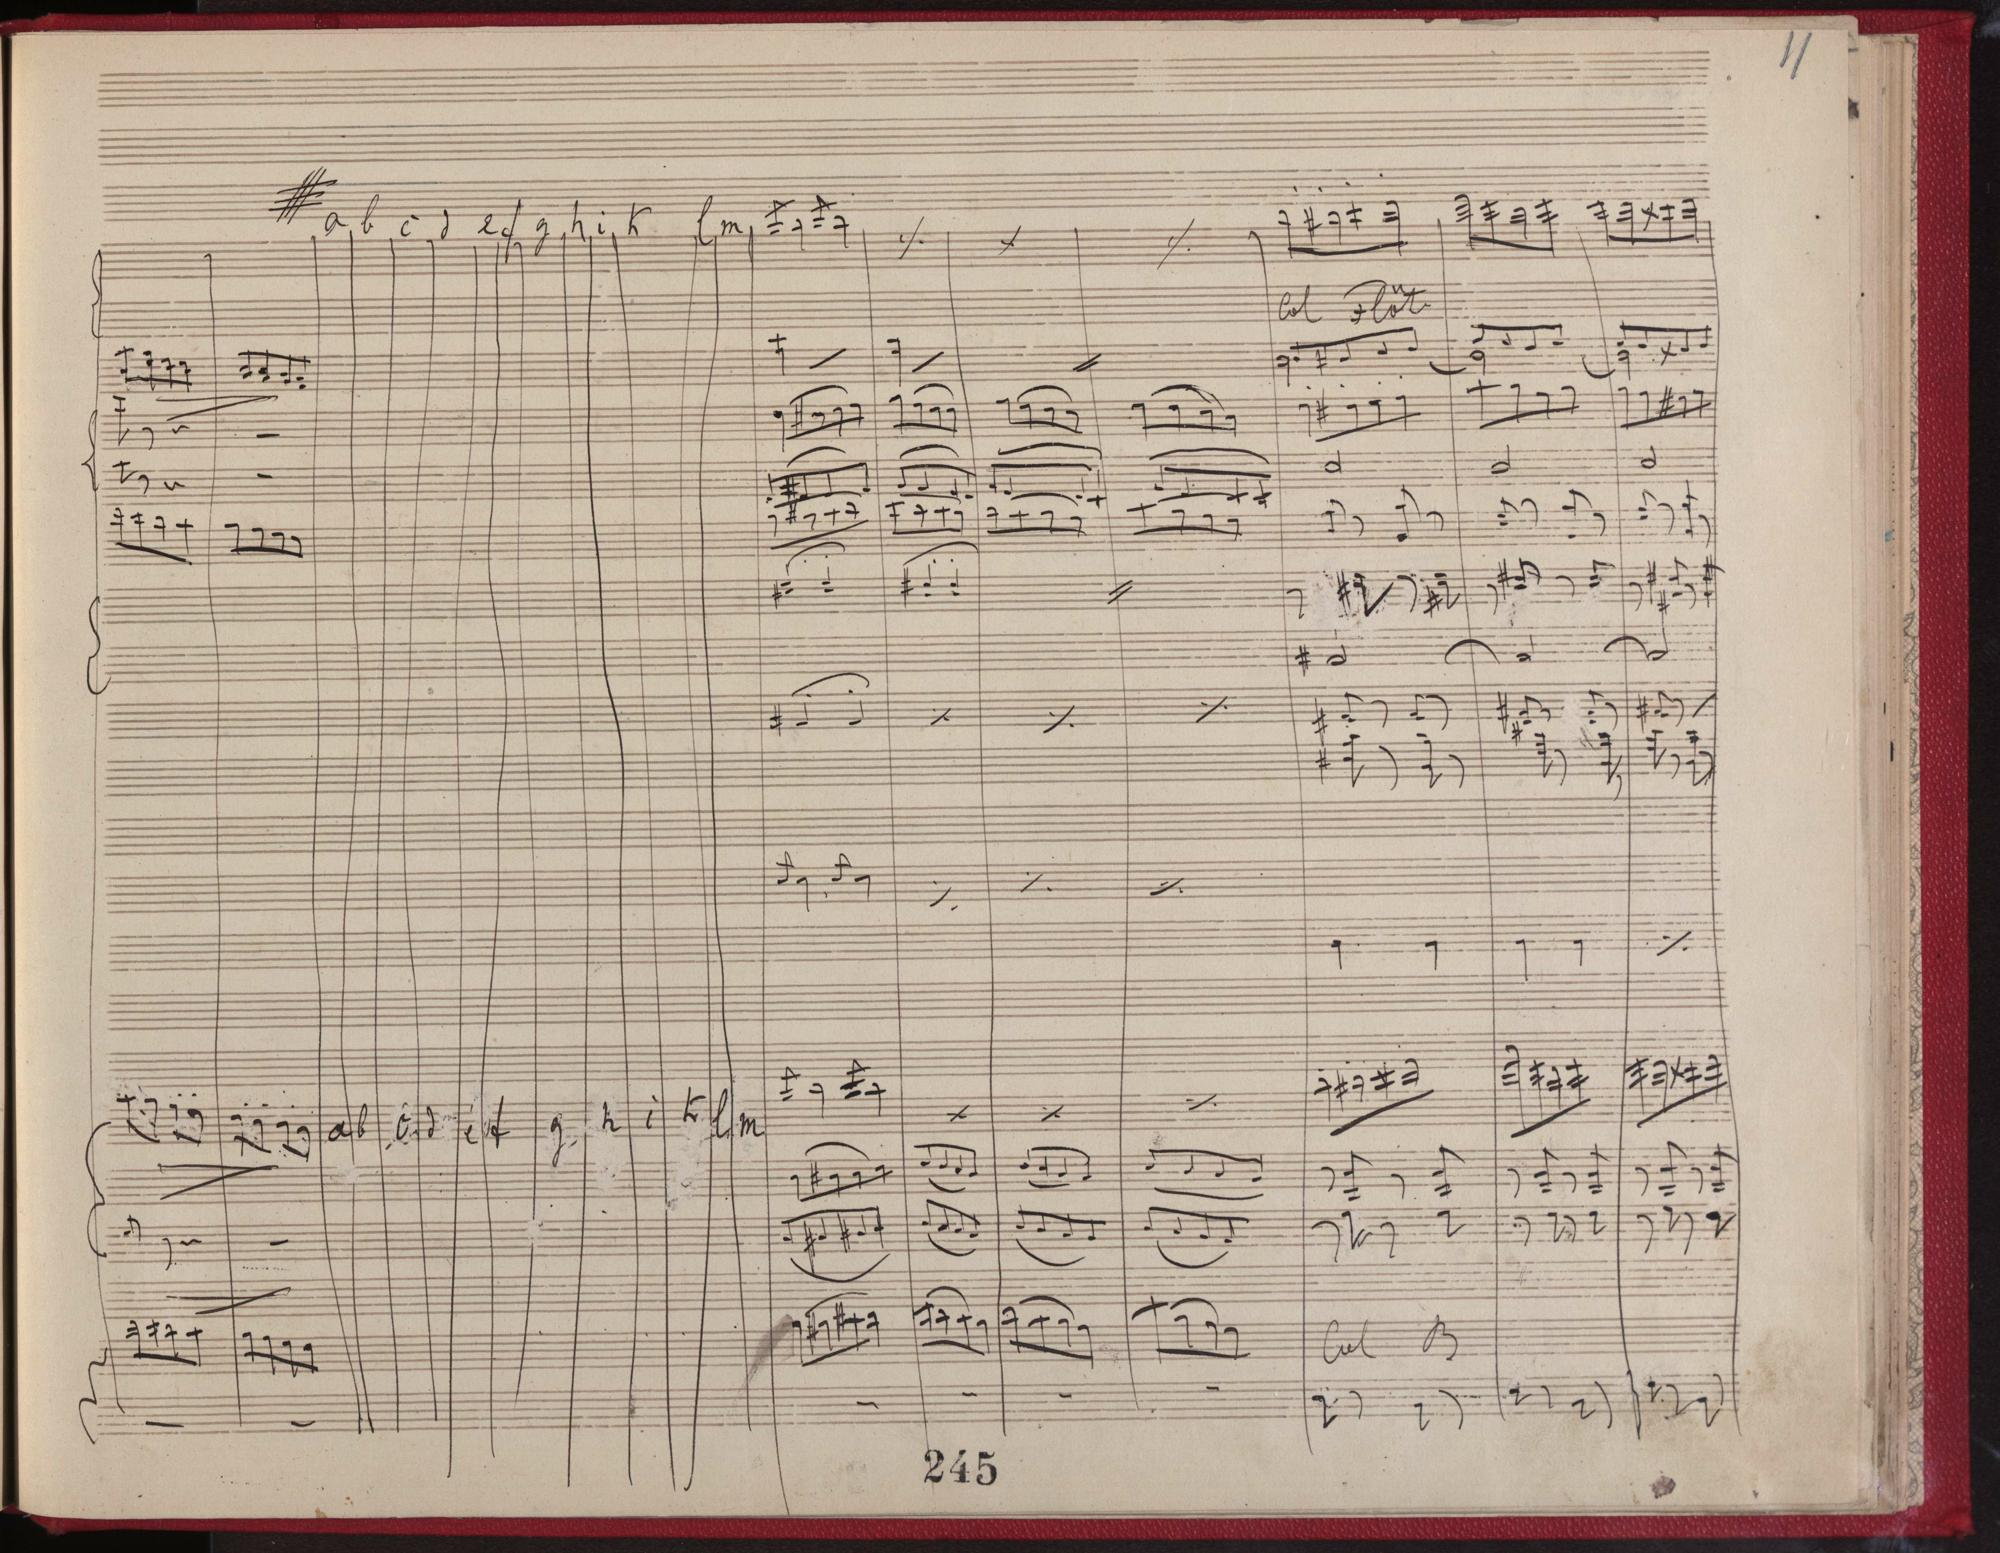 11
a b c d e f g h i k l m
Col Flöt
a b c d e f g h i k l m
Col B
245